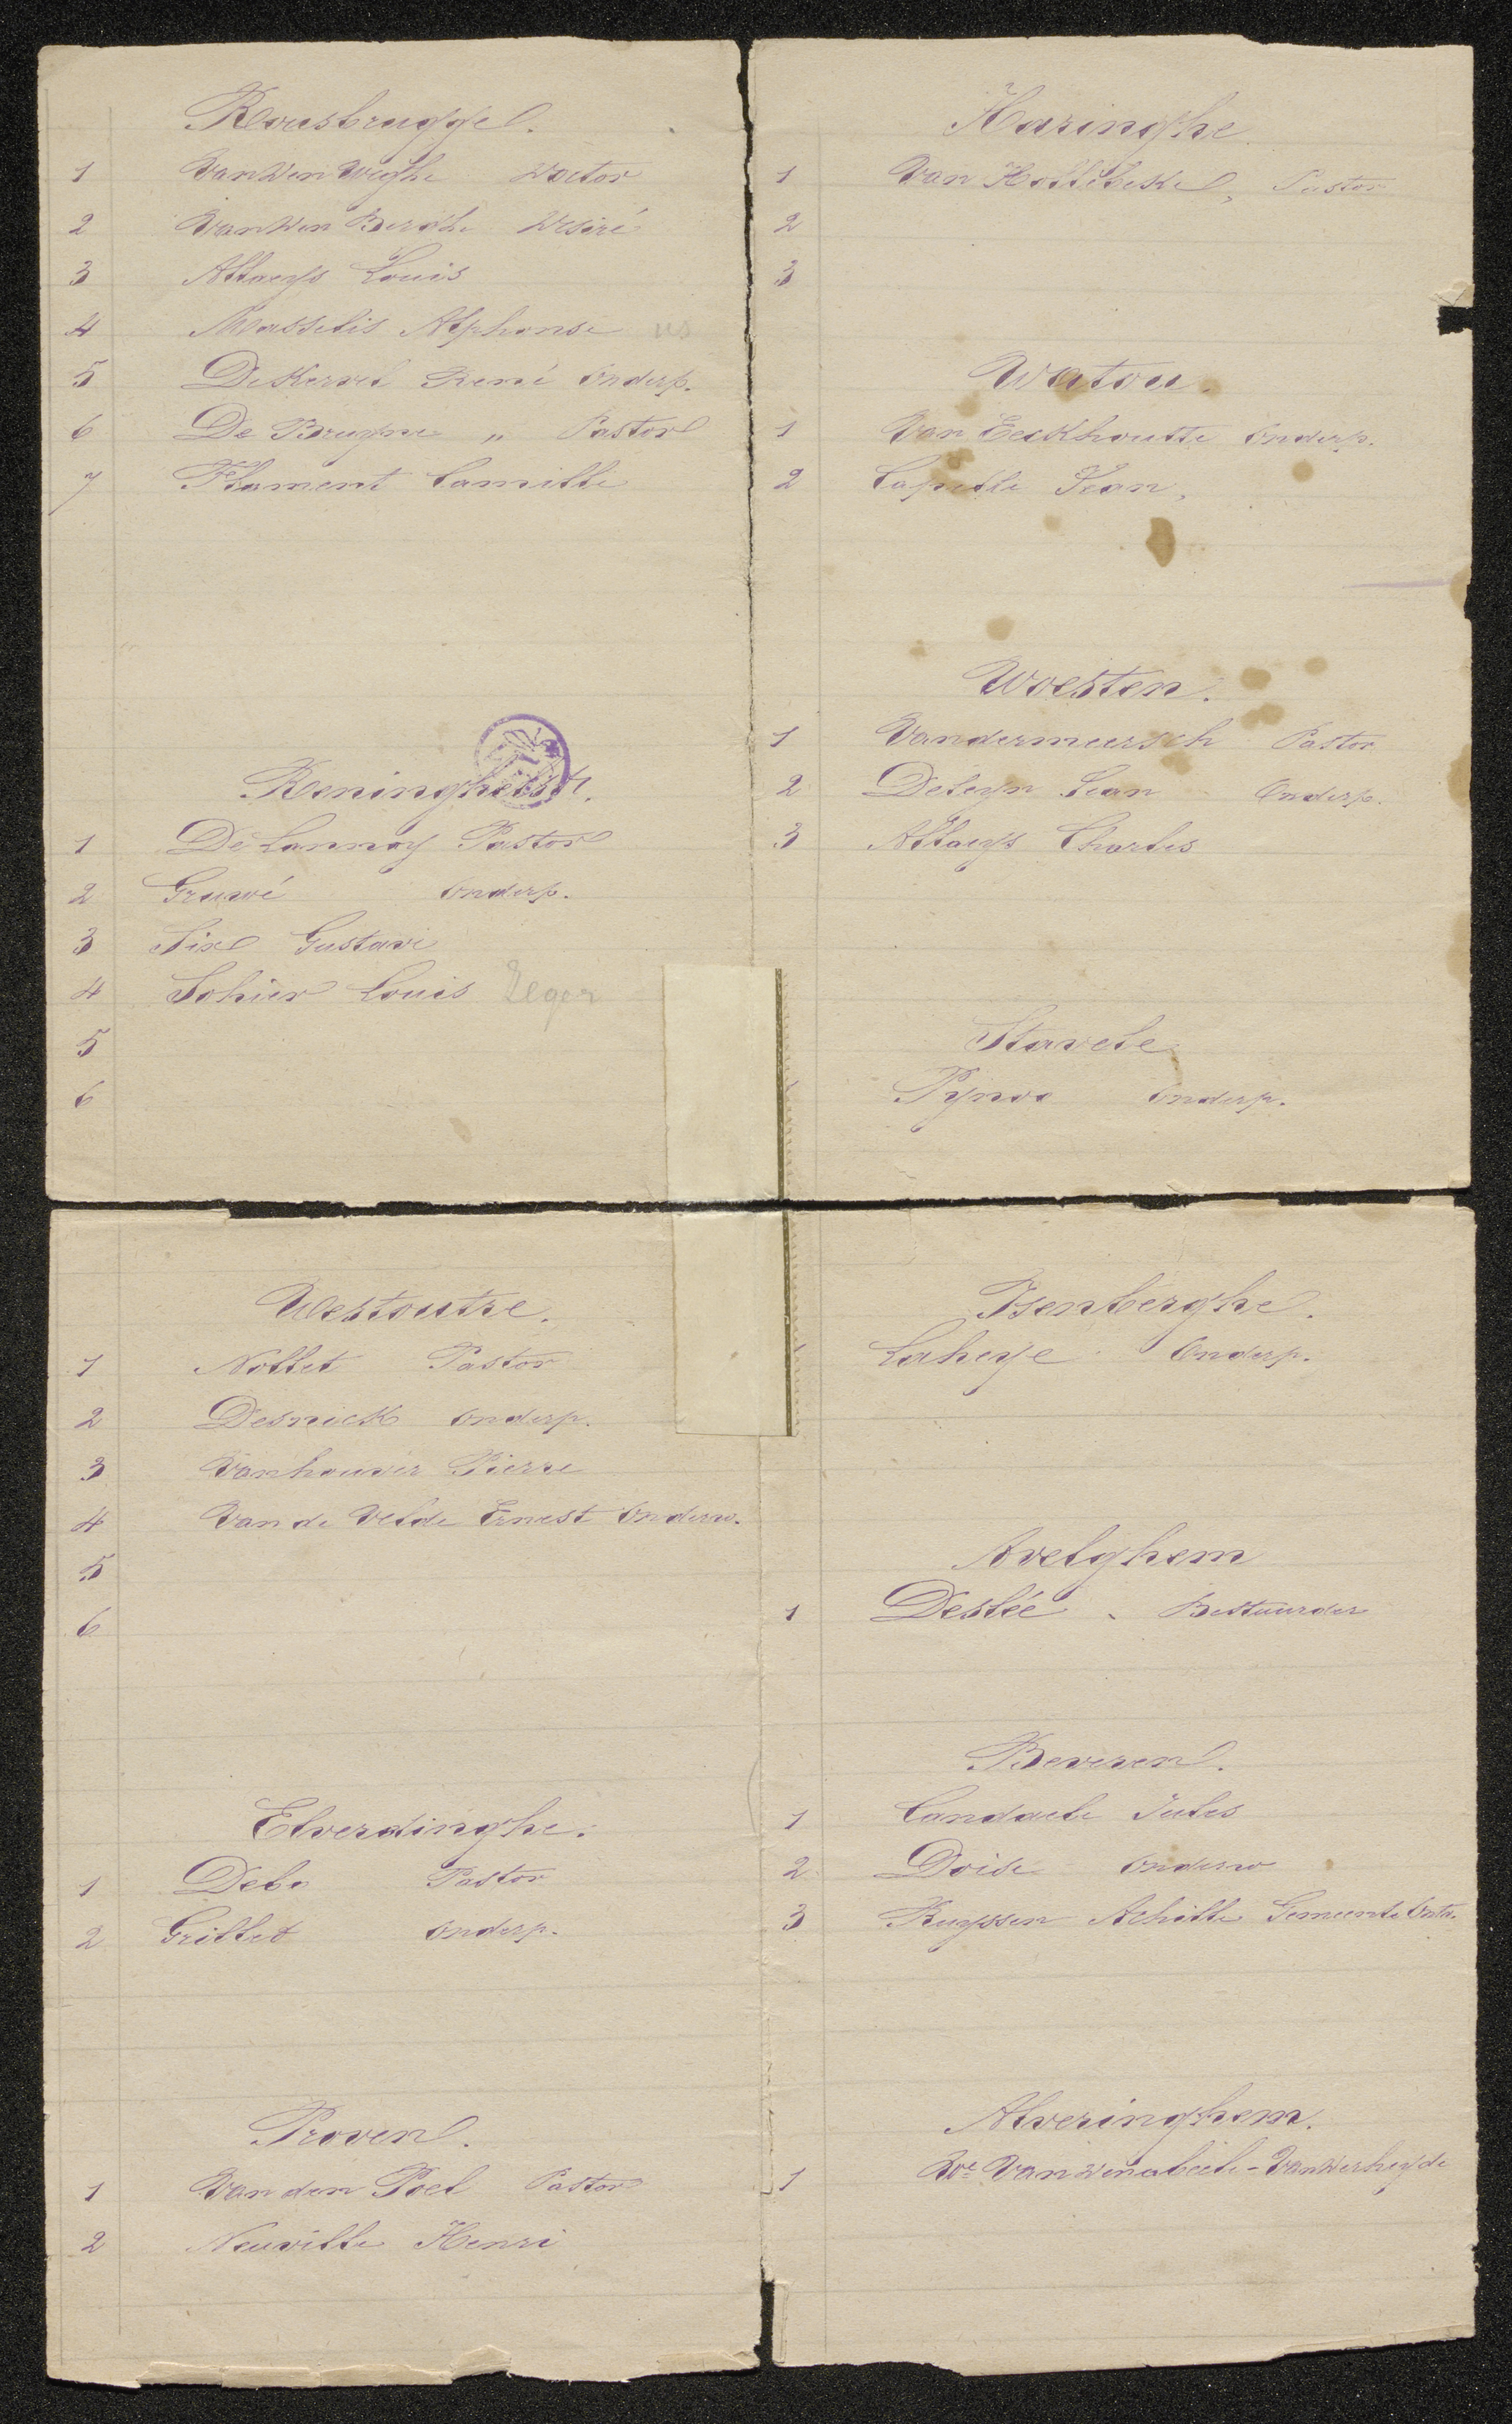 Rousbrugge.
1 Vanden Weghe Doctor
2 Vanden Berghe Désiré
3 Allaeys Louis
4 Masselis Alphonse
5 Dekervel René Onderp.
6 De Bruyne " Pastor
7 Flament Camille
Reninghelst.
1 De Lannoy Pastor
2 Gruwé Onderp.
3 Six Gustave
4 Sohier Louis Leger
5
6
Westoutre.
1 Nollet Pastor
2 Desnick Onderp.
3 Vanhouver Pierre
4 Van de Velde Ernest Onderw.
5
6
Elverdinghe.
1 Debo Pastor
2 Grillet Onderp.
Proven.
1 Van den Poel Pastor
2 Neuville Henri
Haringhe
1 Van Hollebeke, Pastor
2
3
Watou.
1 Van Eeckhoutte Onderp.
2 Capelle Jean,
Woesten.
1 Vandermeersch Pastor
2 Deleyn Jean Onderp.
3 Allaeys Charles
Stavele
Pynoo Onderp.
Isenberghe.
Laheye Onderp.
Avelghem
1 Deslée Bestuurder
Beveren.
1 Candaele Jules
2 Doise Onderw
3 Ruyssen Achille Gemeente Ontv.
Alveringhem.
1 We Vandenabeele-Vanderheyde